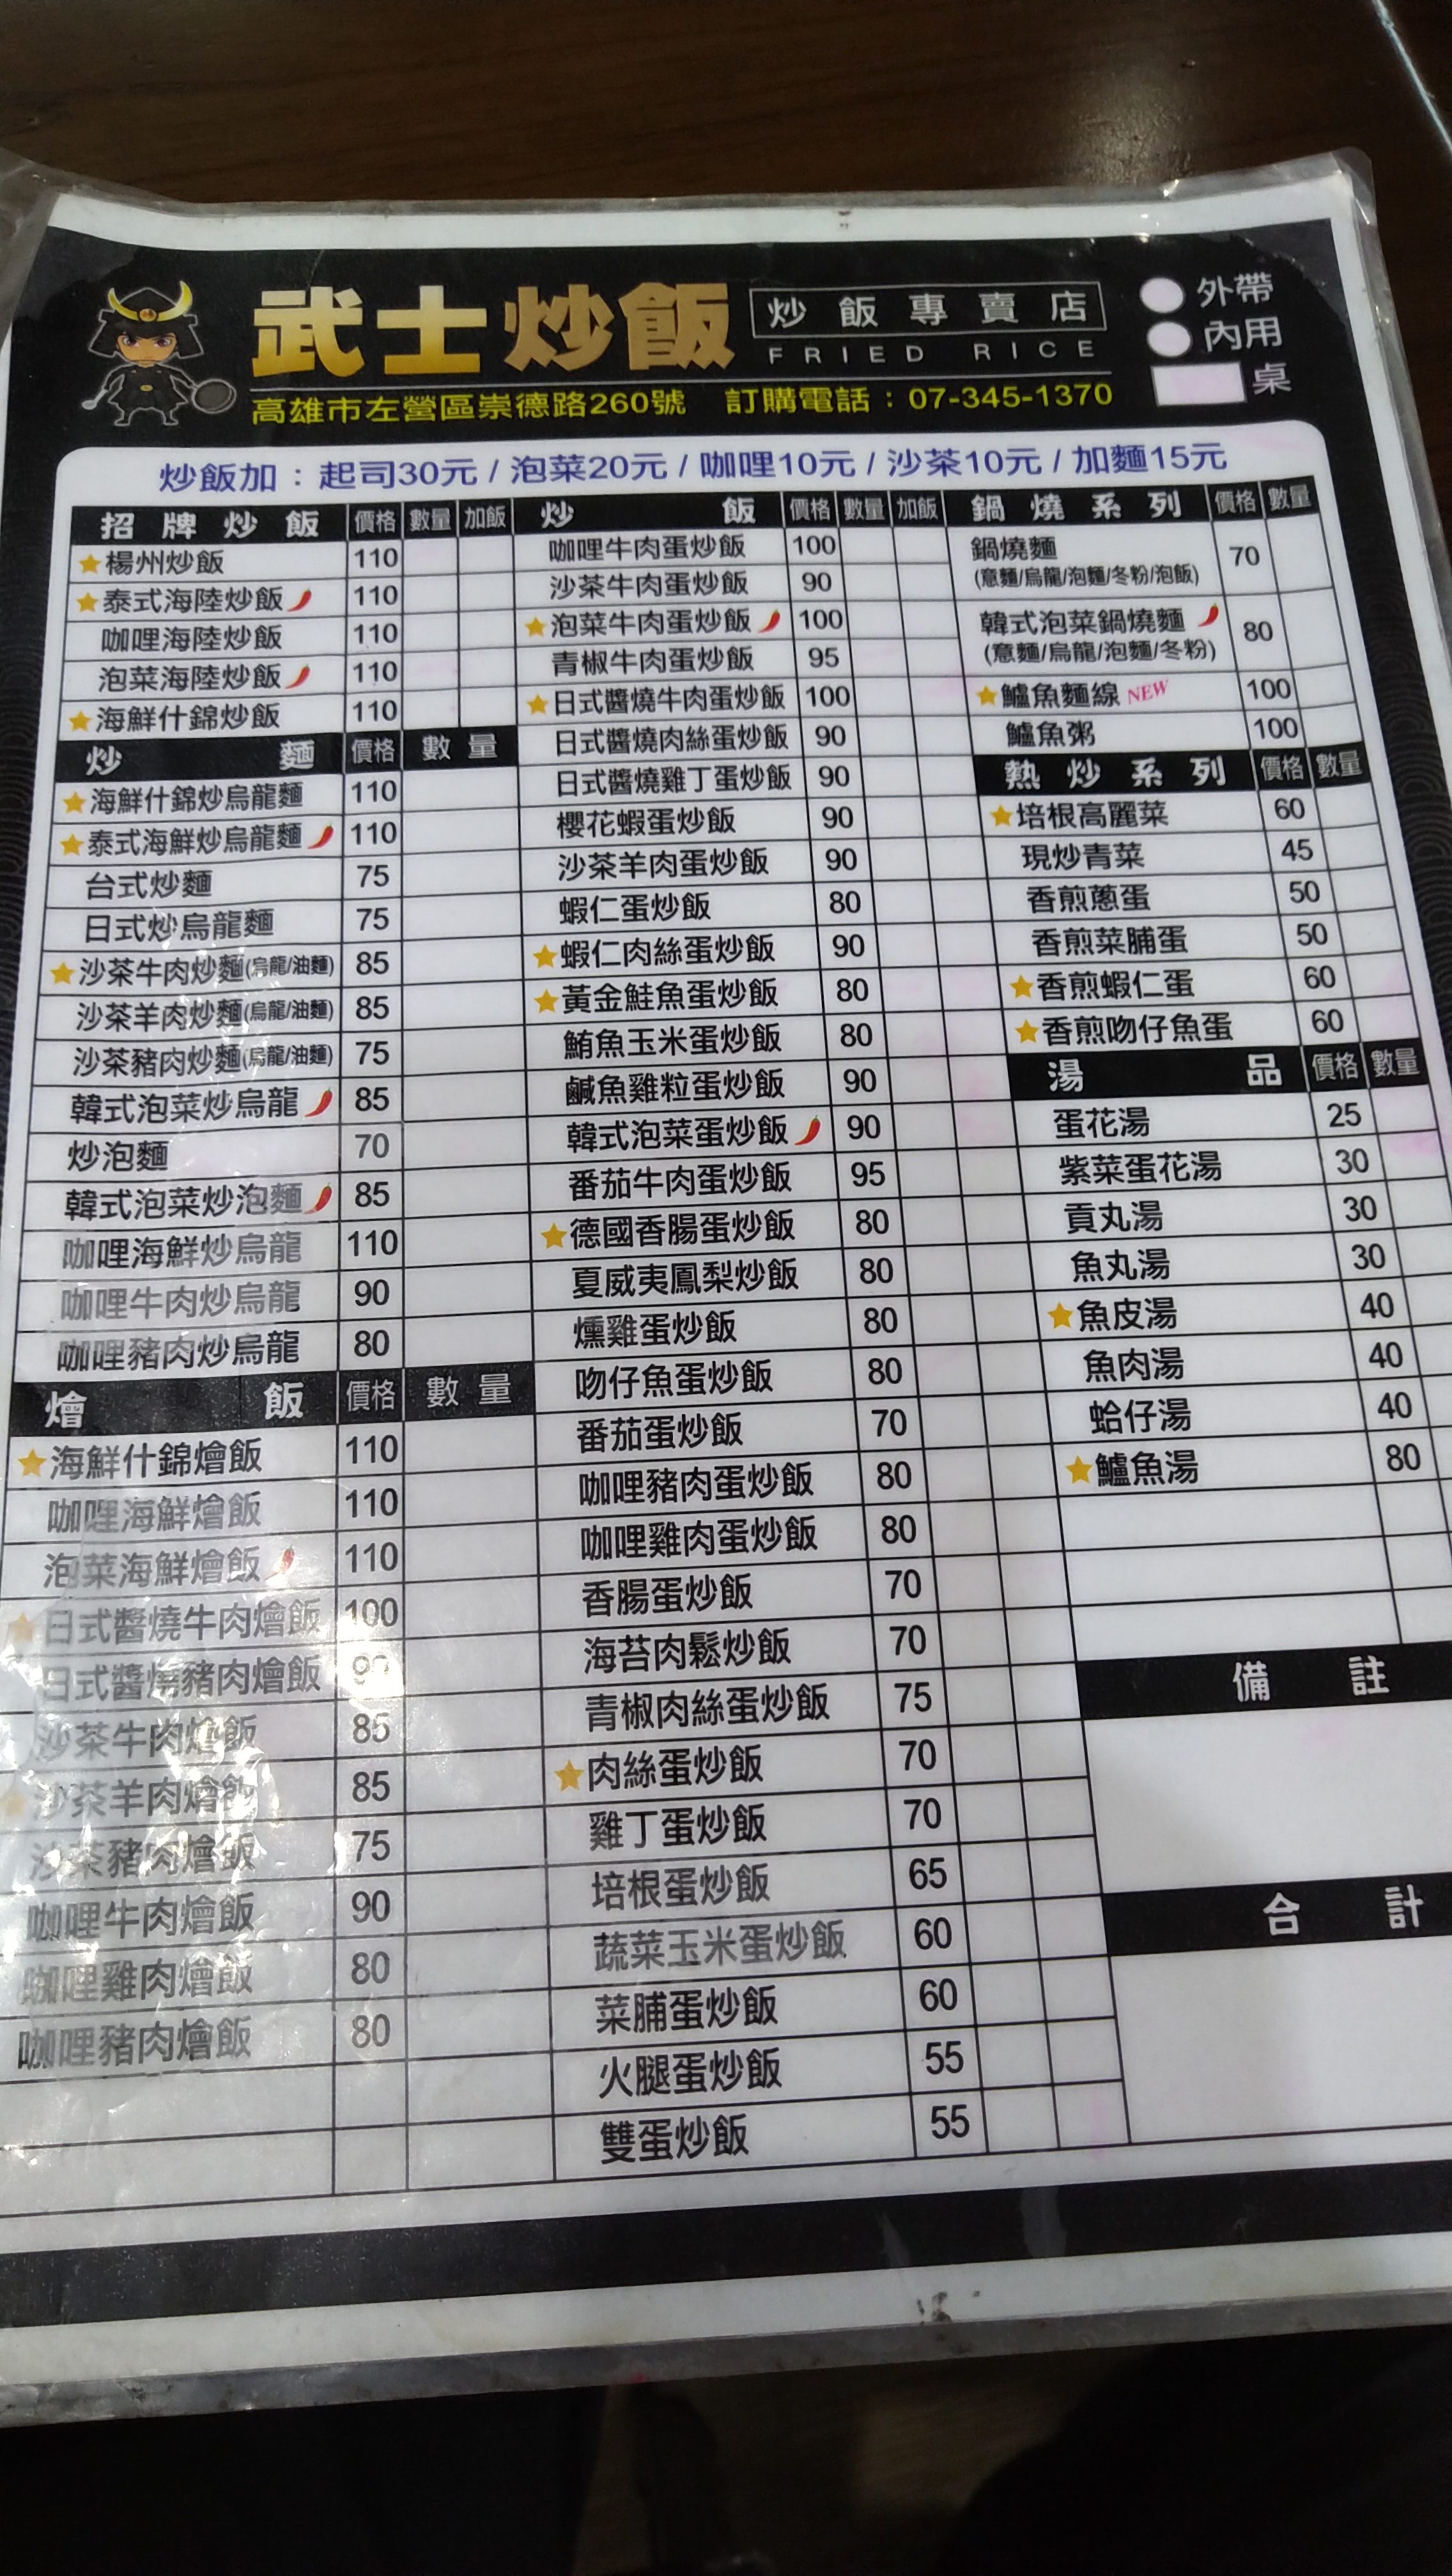 武士炒飯 炒飯專賣店
FRIED RICE
高雄市左營區崇德路260號 訂購電話：07-345-1370
外帶
內用
桌
炒飯加：起司30元/泡菜20元/咖哩10元/沙茶10元/加麵15元
招牌炒飯 價格 數量 加飯
★楊州炒飯 110
★泰式海陸炒飯 110
咖哩海陸炒飯 110
泡菜海陸炒飯 110
★海鮮什錦炒飯 110
炒麵 價格 數量
★海鮮什錦炒烏龍麵 110
★泰式海鮮炒烏龍麵 110
台式炒麵 75
日式炒烏龍麵 75
★沙茶牛肉炒麵(烏龍/油麵) 85
沙茶羊肉炒麵(烏龍/油麵) 85
沙茶豬肉炒麵(烏龍/油麵) 75
韓式泡菜炒烏龍 85
炒泡麵 70
韓式泡菜炒泡麵 85
咖哩海鮮炒烏龍 110
咖哩牛肉炒烏龍 90
咖哩豬肉炒烏龍 80
燴飯 價格 數量
★海鮮什錦燴飯 110
咖哩海鮮燴飯 110
泡菜海鮮燴飯 110
★日式醬燒牛肉燴飯 100
日式醬燒豬肉燴飯
沙茶牛肉燴飯 85
★沙茶羊肉燴飯 85
沙茶豬肉燴飯 75
咖哩牛肉燴飯 90
咖哩雞肉燴飯 80
咖哩豬肉燴飯 80
炒飯 價格 數量 加飯
咖哩牛肉蛋炒飯 100
沙茶牛肉蛋炒飯 90
★泡菜牛肉蛋炒飯 100
青椒牛肉蛋炒飯 95
★日式醬燒牛肉蛋炒飯 100
日式醬燒肉絲蛋炒飯 90
日式醬燒雞丁蛋炒飯 90
櫻花蝦蛋炒飯 90
沙茶羊肉蛋炒飯 90
蝦仁蛋炒飯 80
★蝦仁肉絲蛋炒飯 90
★黃金鮭魚蛋炒飯 80
鮪魚玉米蛋炒飯 80
鹹魚雞粒蛋炒飯 90
韓式泡菜蛋炒飯 90
番茄牛肉蛋炒飯 95
★德國香腸蛋炒飯 80
夏威夷鳳梨炒飯 80
燻雞蛋炒飯 80
吻仔魚蛋炒飯 80
番茄蛋炒飯 70
咖哩豬肉蛋炒飯 80
咖哩雞肉蛋炒飯 80
香腸蛋炒飯 70
海苔肉鬆炒飯 70
青椒肉絲蛋炒飯 75
★肉絲蛋炒飯 70
雞丁蛋炒飯 70
培根蛋炒飯 65
蔬菜玉米蛋炒飯 60
菜脯蛋炒飯 60
火腿蛋炒飯 55
雙蛋炒飯 55
鍋燒系列 價格 數量
鍋燒麵 70
(意麵/烏龍/泡麵/冬粉/泡飯)
韓式泡菜鍋燒麵 80
(意麵/烏龍/泡麵/冬粉)
★鱸魚麵線 NEW 100
鱸魚粥 100
熱炒系列 價格 數量
★培根高麗菜 60
現炒青菜 45
香煎蔥蛋 50
香煎菜脯蛋 50
★香煎蝦仁蛋 60
★香煎吻仔魚蛋 60
湯品 價格 數量
蛋花湯 25
紫菜蛋花湯 30
貢丸湯 30
魚丸湯 30
★魚皮湯 40
魚肉湯 40
蛤仔湯 40
★鱸魚湯 80
備註
合計